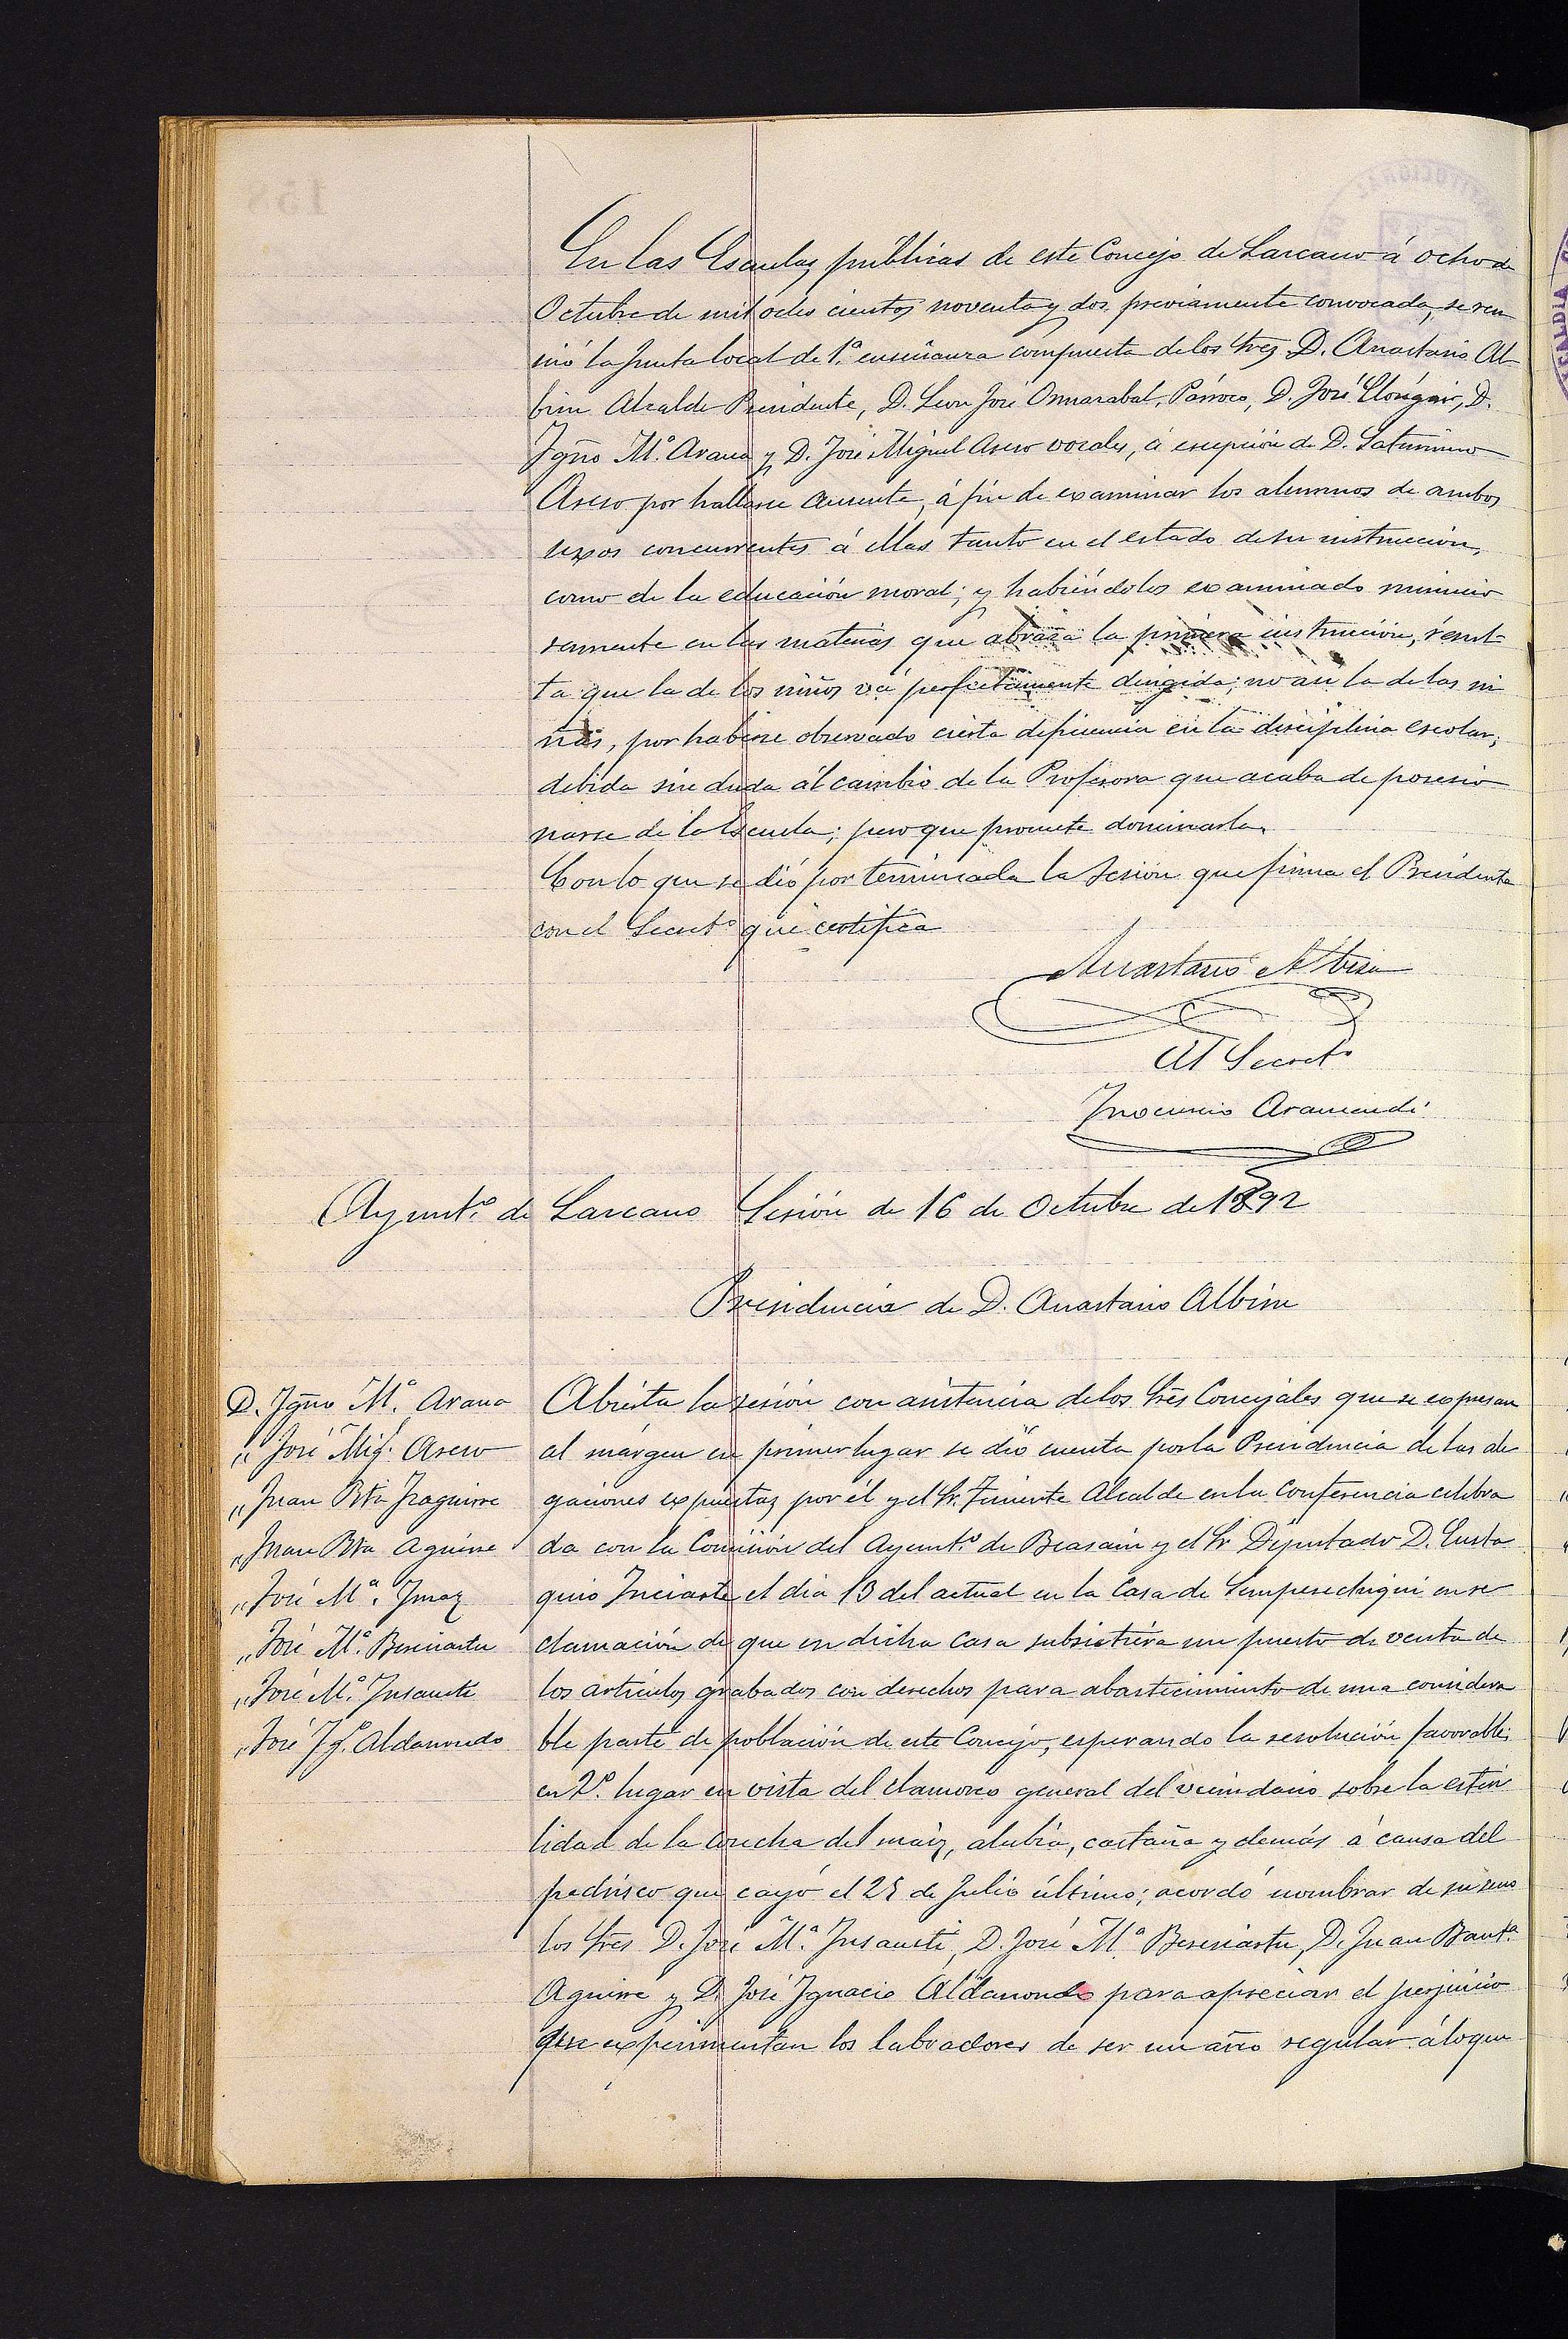 En las Escuelas públicas de este Concejo de Lazcano á ocho de
Octubre de mil ocho cientos noventa y dos, previamente convocada, se reu
nió la Junta local de 1.ª enseñanza compuesta de los Sres D. Anastasio Al-
bisu Alcalde Presidente, D. Leon José Párroco, D. José D.
Igño M.ª Arana y D. José Miguel Asero vocales, á escepción de D. Saturnino
Asero por hallarse ausente, á fin de examinar los alumnos de ambos
sexos concurrentes á ellas tanto en el estado de su instrucción,
como de la educación moral; y habiéndolos examinado minucio
samente en las materias que abraza la primera instrucción, resul-
ta que la de los niños vá perfectamente dirigida; no asi la de las ni
ñas, por haberse observado cierta deficiencia en la disciplina escolar;
debida sin duda al cambio de la Profesora que acaba de posesio
narse de la Escuela; pero que promete dominarla.
Con lo que se dió por terminada la sesión que firma el Presidente
con el Secret.º que certifica
Anastasio Albisu
El Secret.º
Inocencio Aramendi
Ayunt.º de Lazcano Sesión de 16 de Octubre de 1892
Presidencia de D. Anastasio Albisu
D. Igño M.ª Arana
" José Mig.l Asero
" Juan Bta Iraguirre
" Juan Bta Aguirre
" José M.ª Imaz
" José M.ª Beseriartu
" José M.ª Insausti
" José Ig.º Aldanondo
Abierta la sesión con asistencia de los Sres Concejales que se expresan
al márgen en primer lugar se dió cuenta por la Presidencia de las ale
gaciones expuestas por él y el Sr. Teniente Alcalde en la Conferencia celebra
da con la Comisión del Ayunt.º de Beasain y el Sr Diputado D. Eusta
quio Inciarte el dia 13 del actual en la Casa de Semperechiqui en re
clamación de que en dicha Casa subsistiera un puesto de venta de
los artículos grabados con derechos para abastecimiento de una considera
ble parte de población de este Concejo, esperando la resolución favorable;
en 2.º lugar en vista del clamoreo general del vecindario sobre la estiri
lidad de la cosecha del maiz, alubia, castaña y demás á causa del
pedrisco que cayó el 25 de Julio último; acordó nombrar de su seno
los Sres D. José M.ª Insausti, D. José M.ª Beseriartu, D. Juan Baut.ª
Aguirre y D. José Ignacio Aldanondo para apreciar el perjuicio
que experimentan los labradores de ser un año regular á lo que